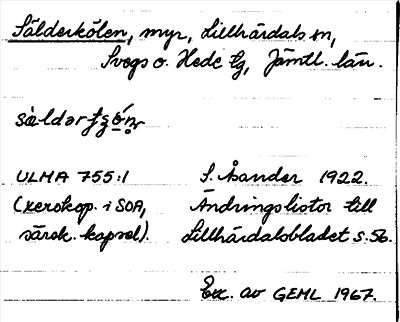 Sälderkölen, myr, Lillhärdals sn,
Svegs o. Hede tg, Jämtl. län.
ULMA 755:1 S. Åsander 1922.
(xerokop. i SOA, Ändringslistor till
särsk. kapsel). Lillhärdalsbladet s. 56.
Exc. av GEML 1967.